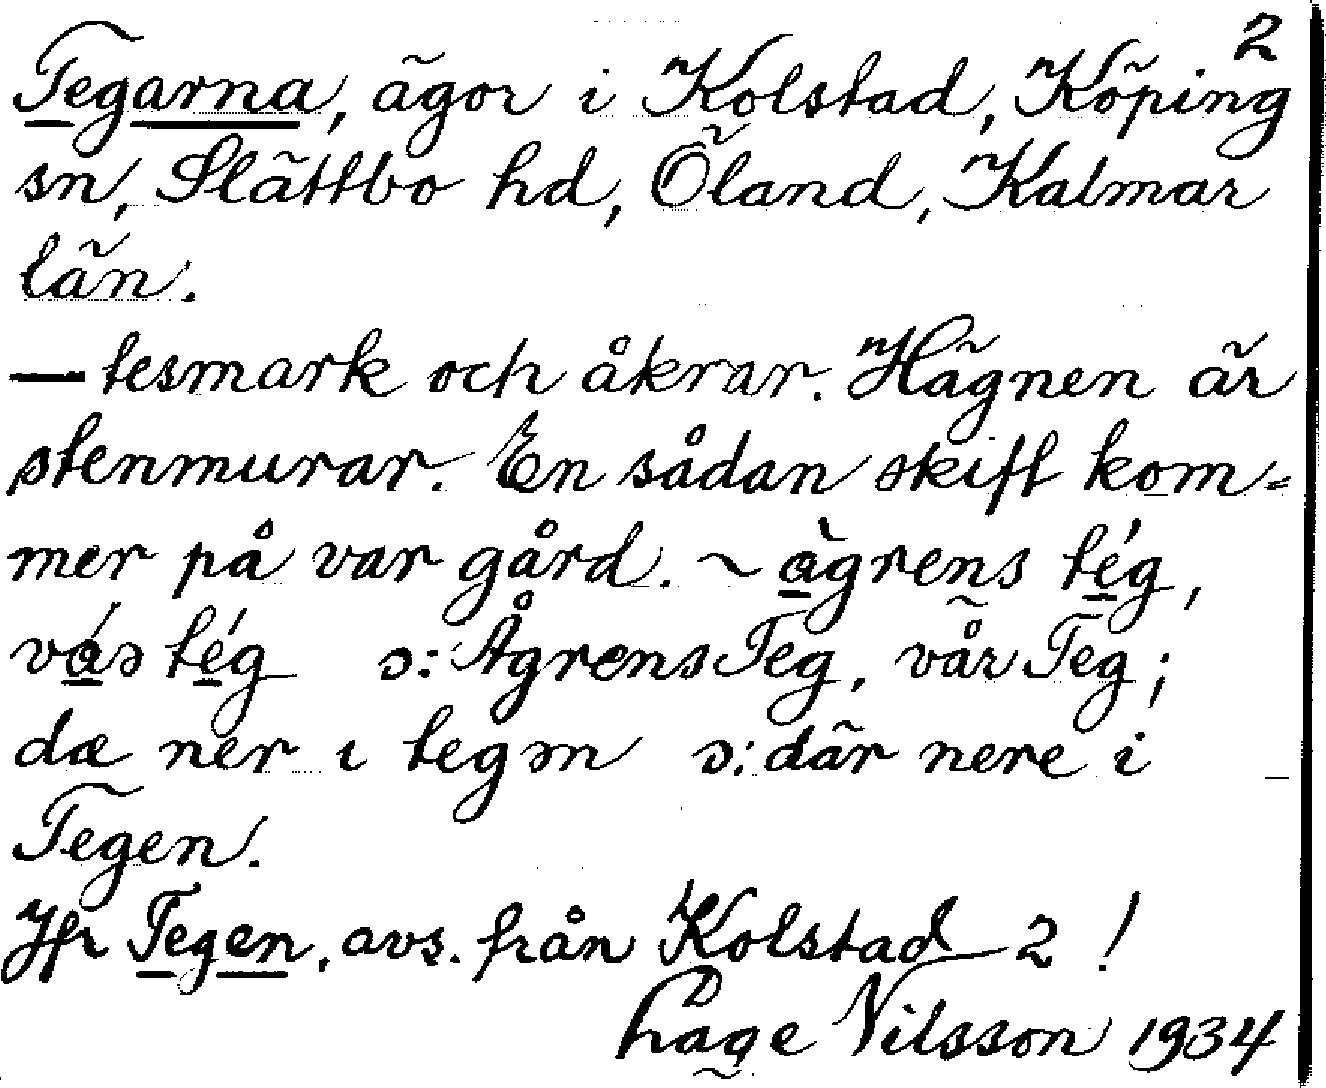 2
Tegarna, ägor i Kolstad, Köping
sn, Slättbo hd, Öland, Kalmar
län.
— tesmark och åkrar. Hägnen är
stenmurar. En sådan skift kom=
mer på var gård. ~ àgrens tég,
vás tég ɔ: Ågrens Teg, vår Teg;
dæ ner ı tegən ɔ: där nere i
Tegen.
Jfr Tegen, avs. från Kolstad 2!
Håge Nilsson 1934